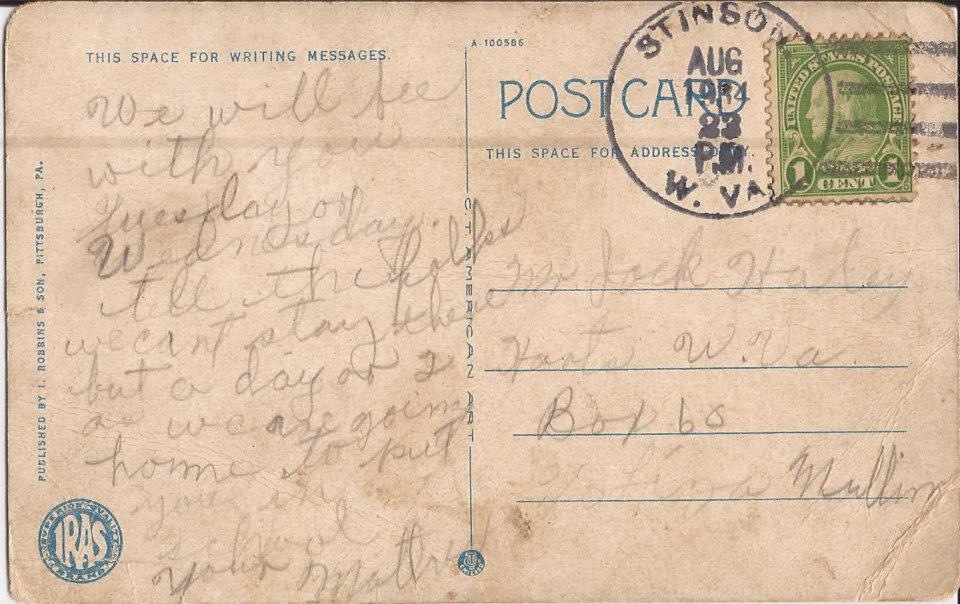 THIS SPACE FOR WRITING MESSAGES.
We will bee
with you
tuesday or
Wednesday.
tell the folkes
we cant stay there
but a day or 2
as we are going
home to put
you in
school
your Mother
PUBLISHED BY I. ROBBINS & SON, PITTSBURGH, PA.
SUPERIOR QUALITY
IRAS
BRAND
A-100586
POST CARD
THIS SPACE FOR ADDRESS ONLY.
C.T. AMERICAN ART
STINSON
AUG
22
PM.
W. VA.
UNITED STATES POSTAGE
1 CENT 1
Mr Jack
W. Va
Box 60
Mullins